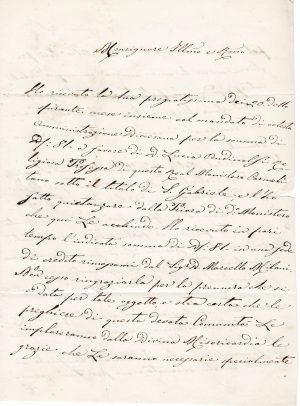 Monsignore Illmo e Rmo
Ho ricevuto la sua pregiatissima dei 20 dello
spirante mese insieme col mandato di cotesta
Amministrazione Diocesana per la somma di
Df: 81. a favore di D. Lucia Re-
ligiosa Professa di questo Real Monistero Carmeli-
tano sotto il titolo di S. Gabriele e l'ho
fatto quietanzare dalla Priora di d.o Monistero
che qui Le acchiudo. Ho ricevuto in pari
tempo l'indicata somma di Df. 81. in una fede
di credito rimessami dal Sig.r D. Marcello
Non cesso ringraziarla per la premura che si
è data per tale oggetto e stia certa che le
preghiere di questa devota Comunità Le
imploreranno dalla Divina Misericordia le
grazie che Le saranno necessarie specialmente